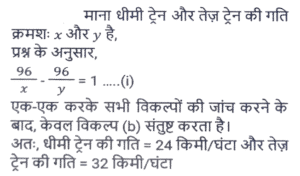 माना धीमी ट्रेन और तेज़ ट्रेन की गति
क्रमशः x और y है,
प्रश्न के अनुसार,
96/x - 96/y = 1 .....(i)
एक-एक करके सभी विकल्पों की जांच करने के
बाद, केवल विकल्प (b) संतुष्ट करता है।
अतः, धीमी ट्रेन की गति = 24 किमी/घंटा और तेज़
ट्रेन की गति = 32 किमी/घंटा